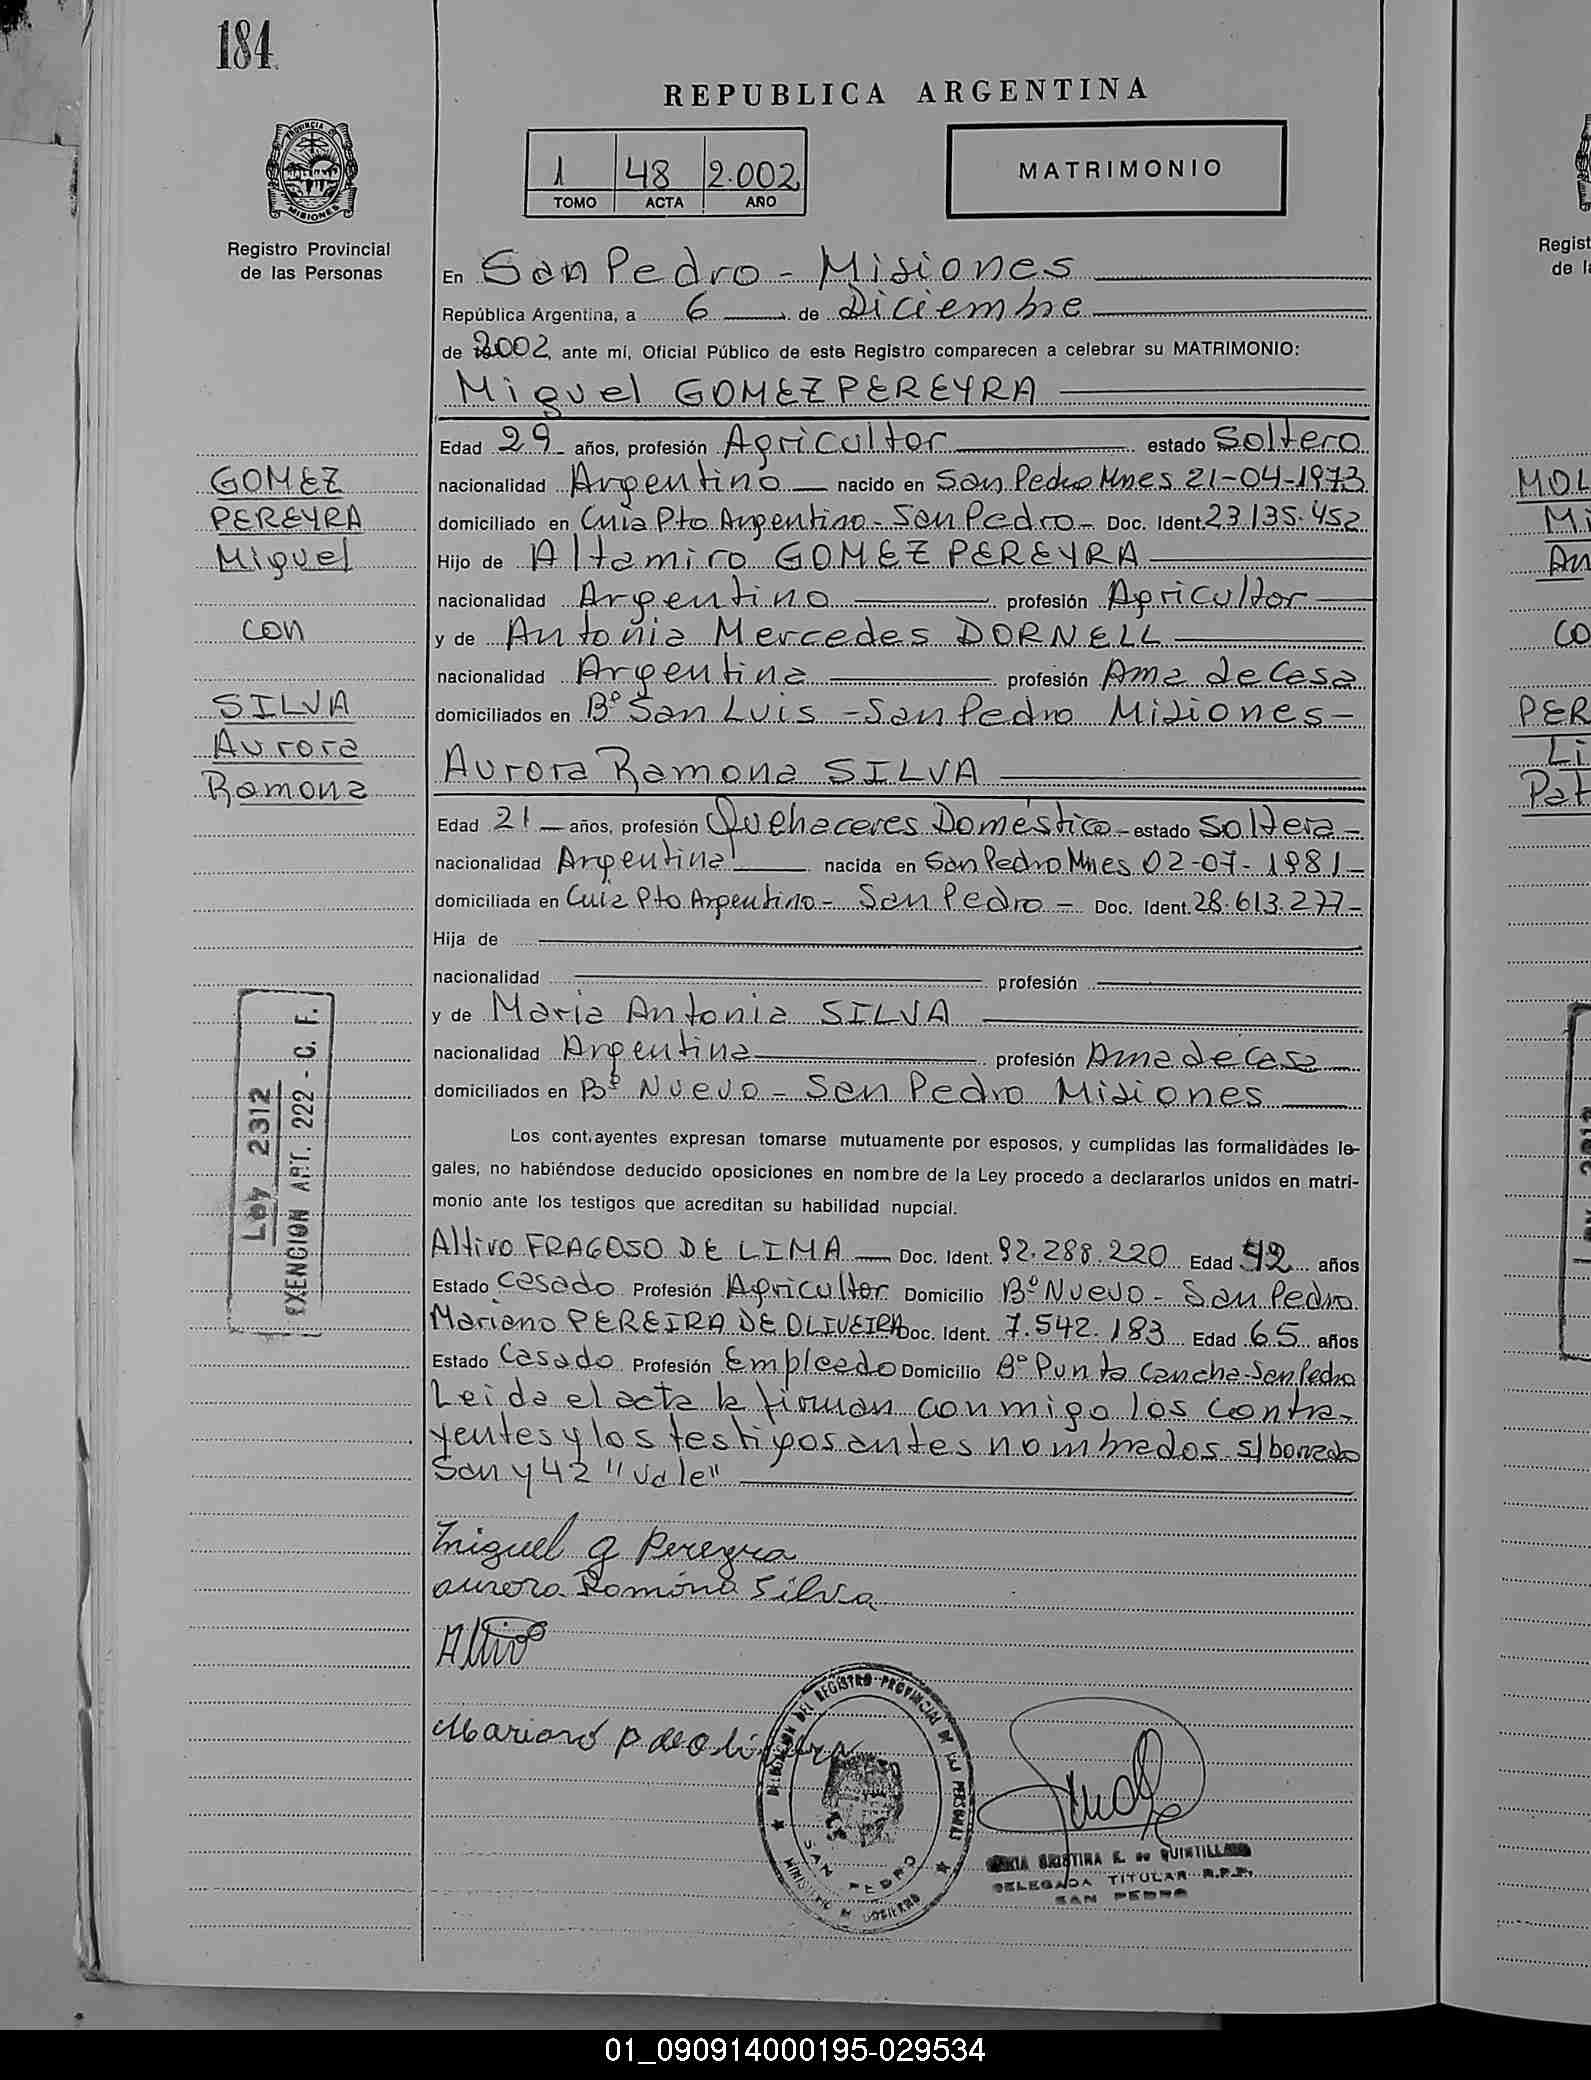 184
REPUBLICA ARGENTINA
1 48 2.002
TOMO ACTA AÑO
MATRIMONIO
PROVINCIA DE MISIONES
Registro Provincial
de las Personas
En San Pedro - Misiones
República Argentina, a 6 de Diciembre
de 2002, ante mí, Oficial Público de este Registro comparecen a celebrar su MATRIMONIO:
Miguel GOMEZ PEREYRA
Edad 29 años, profesión Agricultor estado Soltero
nacionalidad Argentino nacido en San Pedro Mnes 21-04-1973
domiciliado en Cuña Pto Argentino - San Pedro - Doc. Ident. 23.135.452
Hijo de Altamiro GOMEZ PEREYRA
nacionalidad Argentino profesión Agricultor
y de Antonia Mercedes DORNELL
nacionalidad Argentina profesión Ama de Casa
domiciliados en Bº San Luis - San Pedro Misiones -
Aurora Ramona SILVA
Edad 21 años, profesión Quehaceres Doméstico - estado Soltera -
nacionalidad Argentina nacida en San Pedro Mnes 02-07-1981 -
domiciliada en Cuña Pto Argentino - San Pedro - Doc. Ident. 28.613.277 -
Hija de
nacionalidad profesión
y de Maria Antonia SILVA
nacionalidad Argentina profesión Ama de Casa
domiciliados en Bº Nuevo - San Pedro Misiones
Los cont.ayentes expresan tomarse mutuamente por esposos, y cumplidas las formalidades le-
gales, no habiéndose deducido oposiciones en nombre de la Ley procedo a declararlos unidos en matri-
monio ante los testigos que acreditan su habilidad nupcial.
Altivo FRAGOSO DE LIMA Doc. Ident. 92.288.220 Edad 42 años
Estado Casado Profesión Agricultor Domicilio Bº Nuevo - San Pedro
Mariano PEREIRA DE OLIVEIRA Doc. Ident. 7.542.183 Edad 65 años
Estado Casado Profesión Empleado Domicilio Bº Punta Cancha - San Pedro
Leida el acta la firman conmigo los contra-
yentes y los testigos antes nombrados s/borrado
San y 42 "vale"
Miguel G Pereyra
Aurora Ramona Silva
Altivo
Mariano P de Oliveira
GOMEZ
PEREYRA
Miguel
con
SILVA
Aurora
Ramona
Ley 2312
EXENCION ART. 222 - C. F.
DELEGACION DEL REGISTRO PROVINCIAL DE LAS PERSONAS
SAN PEDRO
MINISTERIO DE GOBIERNO
MARIA CRISTINA E. de QUINTILLAN
DELEGADA TITULAR R.P.P.
SAN PEDRO
Regist
de la
MOL
Mi
An
CO
PER
Li
Pat
01_090914000195-029534